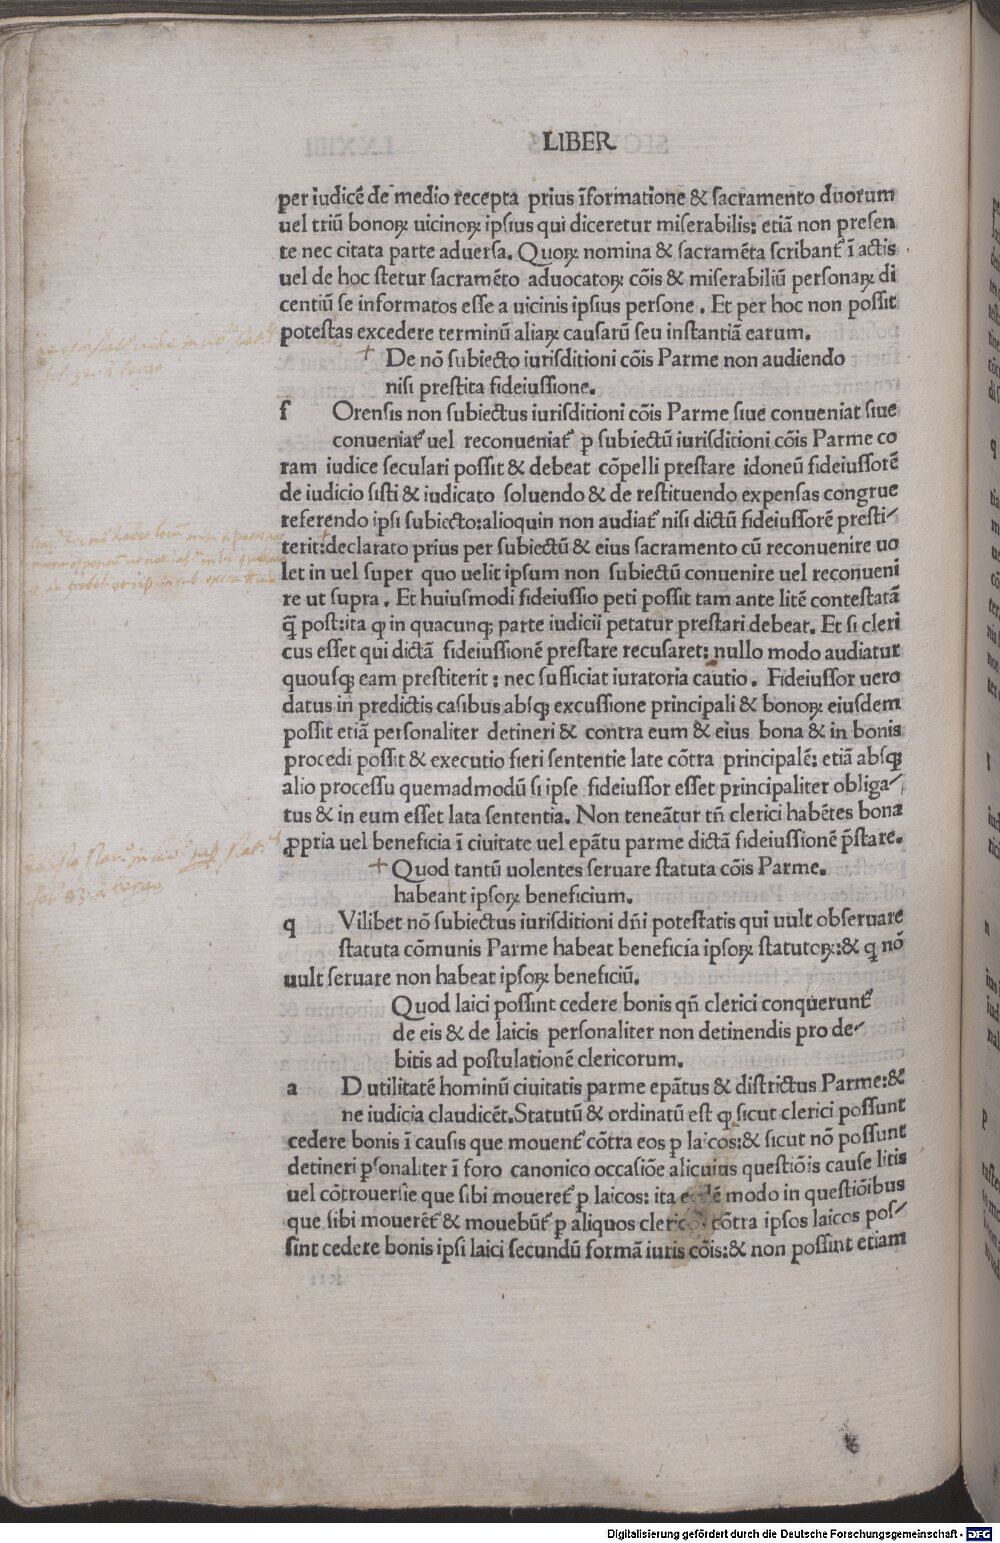 LIBER
per iudicē de medio recepta prius īformatione & sacramento duorum
uel triū bonoꝝ uicinoꝝ ipsius qui diceretur miserabilis: etiā non presen
te nec citata parte aduersa. Quoꝝ nomina & sacramēta scribant᷑ ī actis
uel de hoc stetur sacramēto aduocatoꝝ cōis & miserabiliū personaꝝ di
centiū se informatos esse a uicinis ipsius persone. Et per hoc non possit
potestas excedere terminū aliaꝝ causarū seu instantiā earum.
De nō subiecto iurisditioni cōis Parme non audiendo
nisi prestita fideiussione.
f Orensis non subiectus iurisditioni cōis Parme siue conueniat siue
conueniat᷑ uel reconueniat᷑ ꝑ subiectū iurisditioni cōis Parme co
ram iudice seculari possit & debeat cōpelli prestare idoneū fideiussorē
de iudicio sisti & iudicato soluendo & de restituendo expensas congrue
referendo ipsi subiecto: alioquin non audiat᷑ nisi dictū fideiussorē presti⸗
terit: declarato prius per subiectū & eius sacramento cū reconuenire uo
let in uel super quo uelit ipsum non subiectū conuenire uel reconueni
re ut supra. Et huiusmodi fideiussio peti possit tam ante litē contestatā
q̄ post: ita ꝙ in quacunqꝫ parte iudicii petatur prestari debeat. Et si cleri
cus esset qui dictā fideiussionē prestare recusaret: nullo modo audiatur
quousqꝫ eam prestiterit: nec sufficiat iuratoria cautio. Fideiussor uero
datus in predictis casibus absqꝫ excussione principali & bonoꝝ eiusdem
possit etiā personaliter detineri & contra eum & eius bona & in bonis
procedi possit & executio fieri sententie late cōtra principalē: etiā absqꝫ
alio processu quemadmodū si ipse fideiussor esset principaliter obliga⸗
tus & in eum esset lata sententia. Non teneātur tn̄ clerici habētes bona
ꝓpria uel beneficia ī ciuitate uel epātu parme dictā fideiussionē p̄stare.
Quod tantū uolentes seruare statuta cōis Parme.
habeant ipsoꝝ beneficium.
q Vilibet nō subiectus iurisditioni dn̄i potestatis qui uult obseruare
statuta cōmunis Parme habeat beneficia ipsoꝝ statutoꝝ: & ꝗ nō
uult seruare non habeat ipsoꝝ beneficiū.
Quod laici possint cedere bonis qn̄ clerici conquerunt᷑
de eis & de laicis personaliter non detinendis pro de⸗
bitis ad postulationē clericorum.
a D utilitatē hominū ciuitatis parme epātus & districtus Parme: &
ne iudicia claudicēt. Statutū & ordinatū est ꝙ sicut clerici possunt
cedere bonis ī causis que mouent᷑ cōtra eos ꝑ laicos: & sicut nō possunt
detineri ꝑsonaliter ī foro canonico occasiōe alicuius questiōis cause litis
uel cōtrouersie que sibi moueret᷑ ꝑ laicos: ita modo in questiōibus
que sibi mouerēt᷑ & mouebūt᷑ ꝑ aliquos cōtra ipsos laicos pos⸗
sint cedere bonis ipsi laici secundū formā iuris cōis: & non possint etiam
Digitalisierung gefördert durch die Deutsche Forschungsgemeinschaft - DFG